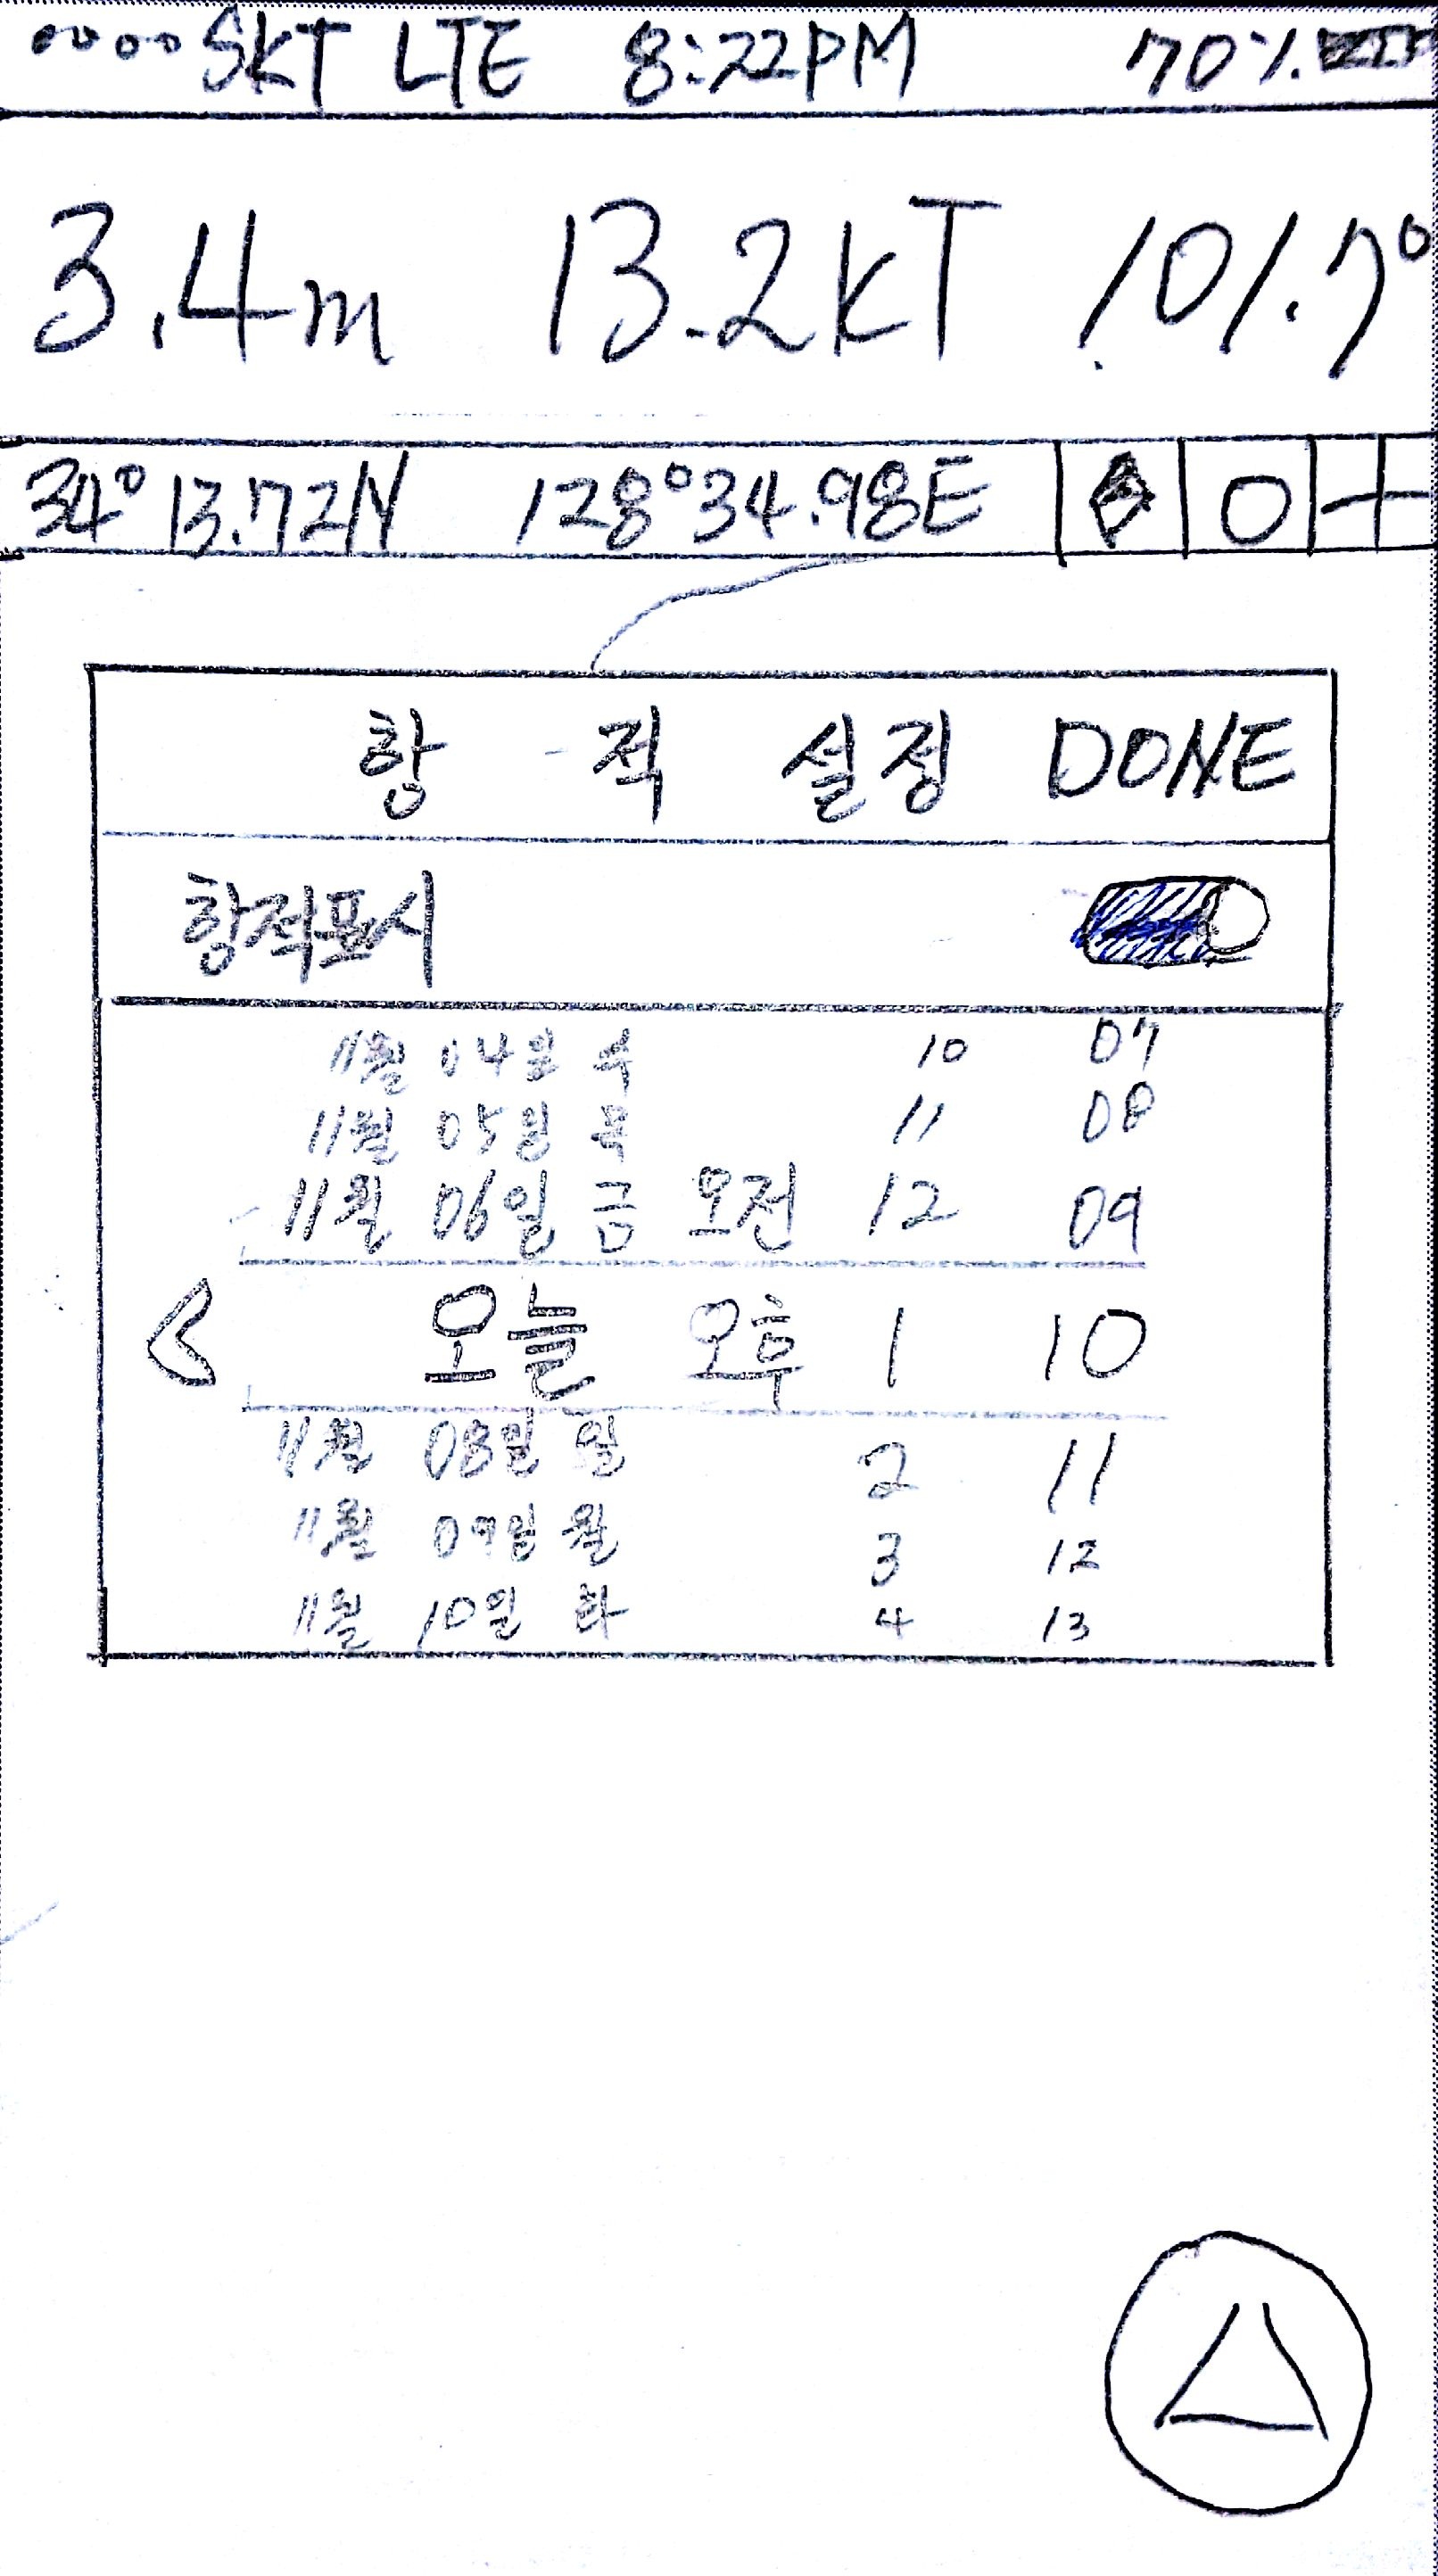 SKT LTE 8:22PM 70%
3.4m 13.2kT 101.7°
34° 13.72N 128° 34.98E
항 적 설정 DONE
항적표시
11월 04일 수 10 07
11월 05일 목 11 08
11월 06일 금 오전 12 09
오늘 오후 1 10
11월 08일 일 2 11
11월 09일 월 3 12
11월 10일 화 4 13